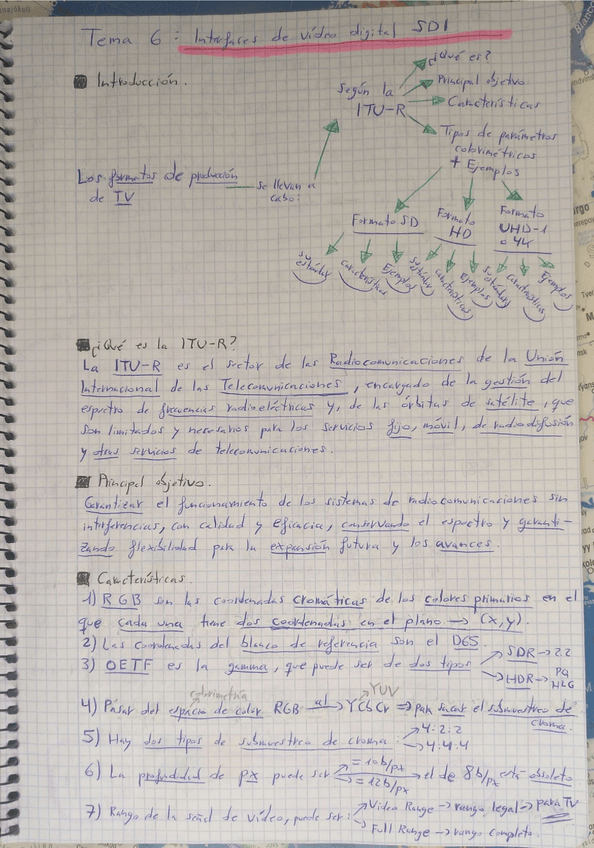 Tema 6: Interfaces de vídeo digital SDI
■ Introducción.
Los formatos de producción de TV
se llevan a cabo:
Según la ITU-R
¿Qué es?
Principal objetivo
Características
Tipos de parámetros colorimétricos + Ejemplos
Formato SD
Formato HD
Formato UHD-1 o 4K
Su estándar
Características
Ejemplos
Su estándar
Características
Ejemplos
Su estándar
Características
Ejemplos
■ ¿Qué es la ITU-R?
La ITU-R es el sector de las Radiocomunicaciones de la Unión
Internacional de las Telecomunicaciones, encargado de la gestión del
espectro de frecuencias radioeléctricas y, de las órbitas de satélite, que
son limitados y necesarios para los servicios fijo, móvil, de radiodifusión
y otros servicios de telecomunicaciones.
■ Principal objetivo.
Garantizar el funcionamiento de los sistemas de radiocomunicaciones sin
interferencias, con calidad y eficacia, conservando el espectro y garanti-
zando flexibilidad para la expansión futura y los avances.
■ Características.
1) RGB son las coordenadas cromáticas de los colores primarios en el
que cada una tiene dos coordenadas en el plano → (x,y).
2) Las coordenadas del blanco de referencia son el D65.
3) OETF es la gamma, que puede ser de dos tipos → SDR → 2.2
→ HDR → PQ
HLG
colorimetría
YUV
4) Pasar del espacio de color RGB al → YCbCr ⇒ para sacar el submuestreo de
croma.
5) Hay dos tipos de submuestreo de croma → 4:2:2
→ 4:4:4
6) La profundidad de px puede ser = 10b/px
= 12b/px → el de 8b/px está obsoleto
7) Rango de la señal de vídeo, puede ser: → Video Range → rango legal → para TV
→ Full Range → rango completo.